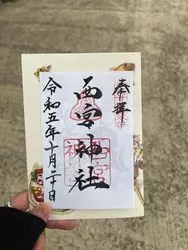 奉拝
西宮神社
令和五年十月二十日